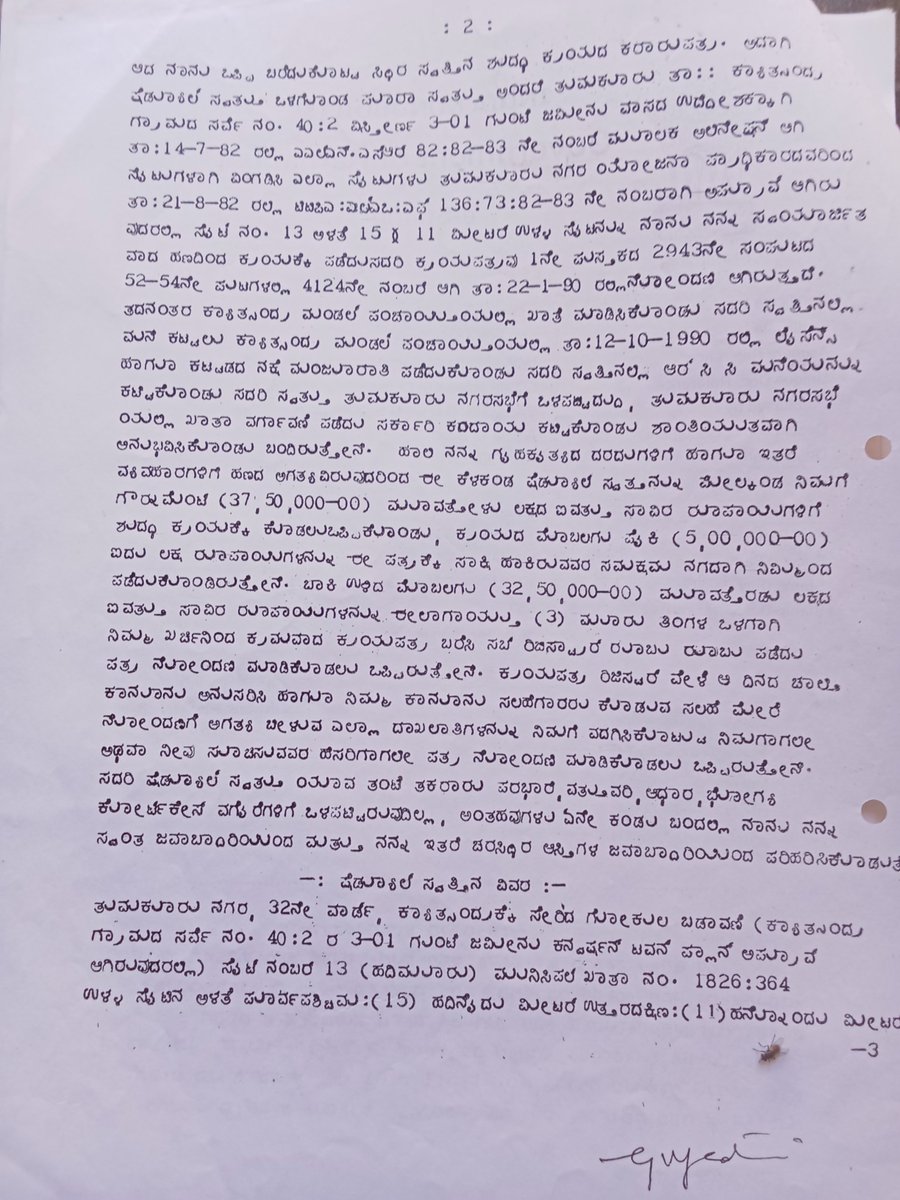 : 2 :
ಆದ ನಾನು ಒಪ್ಪಿ ಬರೆದುಕೊಟ್ಟ ಸ್ಥಿರ ಸ್ವತ್ತಿನ ಶುದ್ಧ ಕ್ರಯದ ಕರಾರುಪತ್ರ. ಅದಾಗಿ
ಷೆಡ್ಯೂಲ್ ಸ್ವತ್ತು ಒಳಗೊಂಡ ಪೂರಾ ಸ್ವತ್ತು ಅಂದರೆ ತುಮಕೂರು ತಾ:: ಕ್ಯಾತ್ಸಂದ್ರ
ಗ್ರಾಮದ ಸರ್ವೆ ನಂ. 40:2 ವಿಸ್ತೀರ್ಣ 3-01 ಗುಂಟೆ ಜಮೀನು ವಾಸದ ಉದ್ದೇಶಕ್ಕಾಗಿ
ತಾ:14-7-82 ರಲ್ಲಿ ಎಎಲ್ಎನ್.ಎಸ್ಆರ್ 82:82-83 ನೇ ನಂಬರ್ ಮೂಲಕ ಅಲಿನೇಷನ್ ಆಗಿ
ಸೈಟುಗಳಾಗಿ ವಿಂಗಡಿಸಿ ಎಲ್ಲಾ ಸೈಟುಗಳು ತುಮಕೂರು ನಗರ ಯೋಜನಾ ಪ್ರಾಧಿಕಾರದವರಿಂದ
ತಾ:21-8-82 ರಲ್ಲಿ ಟಿಟಿಪಿಎ:ಎಲ್ಎಒ:ಎಫ್ 136:73:82-83 ನೇ ನಂಬರಾಗಿ ಅಪ್ರೂವ್ ಆಗಿರು
ವುದರಲ್ಲಿ ಸೈಟ್ ನಂ. 13 ಅಳತೆ 15 X 11 ಮೀಟರ್ ಉಳ್ಳ ಸೈಟನ್ನು ನಾನು ನನ್ನ ಸ್ವಯಾರ್ಜಿತ
ವಾದ ಹಣದಿಂದ ಕ್ರಯಕ್ಕೆ ಪಡೆದುಸದರಿ ಕ್ರಯಪತ್ರವು 1ನೇ ಪುಸ್ತಕದ 2943ನೇ ಸಂಪುಟದ
52-54ನೇ ಪುಟಗಳಲ್ಲಿ 4124ನೇ ನಂಬರ್ ಆಗಿ ತಾ:22-1-90 ರಲ್ಲಿನೋಂದಣಿ ಆಗಿರುತ್ತದೆ.
ತದನಂತರ ಕ್ಯಾತ್ಸಂದ್ರ ಮಂಡಲ್ ಪಂಚಾಯ್ತಿಯಲ್ಲಿ ಖಾತೆ ಮಾಡಿಸಿಕೊಂಡು ಸದರಿ ಸ್ವತ್ತಿನಲ್ಲಿ
ಮನೆ ಕಟ್ಟಲು ಕ್ಯಾತ್ಸಂದ್ರ ಮಂಡಲ್ ಪಂಚಾಯ್ತಿಯಲ್ಲಿ ತಾ:12-10-1990 ರಲ್ಲಿ ಲೈಸೆನ್ಸ್
ಹಾಗೂ ಕಟ್ಟಡದ ನಕ್ಷೆ ಮಂಜೂರಾತಿ ಪಡೆದುಕೊಂಡು ಸದರಿ ಸ್ವತ್ತಿನಲ್ಲಿ ಆರ್ ಸಿ ಸಿ ಮನೆಯನ್ನು
ಕಟ್ಟಿಕೊಂಡು ಸದರಿ ಸ್ವತ್ತು ತುಮಕೂರು ನಗರಸಭೆಗೆ ಒಳಪಟ್ಟಿದ್ದು, ತುಮಕೂರು ನಗರಸಭೆ
ಯಲ್ಲಿ ಖಾತಾ ವರ್ಗಾವಣೆ ಪಡೆದು ಸರ್ಕಾರಿ ಕಂದಾಯ ಕಟ್ಟಿಕೊಂಡು ಶಾಂತಿಯುತವಾಗಿ
ಅನುಭವಿಸಿಕೊಂಡು ಬಂದಿರುತ್ತೇನೆ. ಹಾಲಿ ನನ್ನ ಗೃಹಕೃತ್ಯದ ದರದುಗಳಿಗೆ ಹಾಗೂ ಇತರೆ
ವ್ಯವಹಾರಗಳಿಗೆ ಹಣದ ಅಗತ್ಯವಿರುವುದರಿಂದ ಈ ಕೆಳಕಂಡ ಷೆಡ್ಯೂಲ್ ಸ್ವತ್ತನ್ನು ಮೇಲ್ಕಂಡ ನಿಮಗೆ
ಗೌರ್ನಮೆಂಟ್ (37,50,000-00) ಮೂವತ್ತೇಳು ಲಕ್ಷದ ಐವತ್ತು ಸಾವಿರ ರೂಪಾಯಿಗಳಿಗೆ
ಶುದ್ಧ ಕ್ರಯಕ್ಕೆ ಕೊಡಲುಒಪ್ಪಿಕೊಂಡು, ಕ್ರಯದ ಮೊಬಲಗು ಪೈಕಿ (5,00,000-00)
ಐದು ಲಕ್ಷ ರೂಪಾಯಿಗಳನ್ನು ಈ ಪತ್ರಕ್ಕೆ ಸಾಕ್ಷಿ ಹಾಕಿರುವವರ ಸಮಕ್ಷಮ ನಗದಾಗಿ ನಿಮ್ಮಿಂದ
ಪಡೆದುಕೊಂಡಿರುತ್ತೇನೆ. ಬಾಕಿ ಉಳಿದ ಮೊಬಲಗು (32,50,000-00) ಮೂವತ್ತೆರಡು ಲಕ್ಷದ
ಐವತ್ತು ಸಾವಿರ ರೂಪಾಯಿಗಳನ್ನು ಈಲಾಗಾಯ್ತು (3) ಮೂರು ತಿಂಗಳ ಒಳಗಾಗಿ
ನಿಮ್ಮ ಖರ್ಚಿನಿಂದ ಕ್ರಮವಾದ ಕ್ರಯಪತ್ರ ಬರೆಸಿ ಸಬ್ ರಿಜಿಸ್ಟ್ರಾರ್ ರೂಬು ರೂಬು ಪಡೆದು
ಪತ್ರ ನೋಂದಣಿ ಮಾಡಿಕೊಡಲು ಒಪ್ಪಿರುತ್ತೇನೆ. ಕ್ರಯಪತ್ರ ರಿಜಿಸ್ಟರ್ ವೇಳೆ ಆ ದಿನದ ಚಾಲ್ತಿ
ಕಾನೂನು ಅನುಸರಿಸಿ ಹಾಗೂ ನಿಮ್ಮ ಕಾನೂನು ಸಲಹೆಗಾರರು ಕೊಡುವ ಸಲಹೆ ಮೇರೆ
ನೋಂದಣಿಗೆ ಅಗತ್ಯ ಬೀಳುವ ಎಲ್ಲಾ ದಾಖಲಾತಿಗಳನ್ನು ನಿಮಗೆ ಒದಗಿಸಿಕೊಟ್ಟು ನಿಮಗಾಗಲೀ
ಅಥವಾ ನೀವು ಸೂಚಿಸುವವರ ಹೆಸರಿಗಾಗಲೀ ಪತ್ರ ನೋಂದಣಿ ಮಾಡಿಕೊಡಲು ಒಪ್ಪಿರುತ್ತೇನೆ.
ಸದರಿ ಷೆಡ್ಯೂಲ್ ಸ್ವತ್ತು ಯಾವ ತಂಟೆ ತಕರಾರು ಪರಭಾರೆ, ವತ್ತುವರಿ, ಆಧಾರ, ಭೋಗ್ಯ
ಕೋರ್ಟ್ಕೇಸ್ ವಗೈರೆಗಳಿಗೆ ಒಳಪಟ್ಟಿರುವುದಿಲ್ಲ, ಅಂತಹವುಗಳು ಏನೇ ಕಂಡು ಬಂದಲ್ಲಿ ನಾನು ನನ್ನ
ಸ್ವಂತ ಜವಾಬ್ದಾರಿಯಿಂದ ಮತ್ತು ನನ್ನ ಇತರೆ ಚರಸ್ಥಿರ ಆಸ್ತಿಗಳ ಜವಾಬ್ದಾರಿಯಿಂದ ಪರಿಹರಿಸಿಕೊಡುತ್ತೆ
-: ಷೆಡ್ಯೂಲ್ ಸ್ವತ್ತಿನ ವಿವರ :-
ತುಮಕೂರು ನಗರ, 32ನೇ ವಾರ್ಡ್, ಕ್ಯಾತ್ಸಂದ್ರಕ್ಕೆ ಸೇರಿದ ಗೋಕುಲ ಬಡಾವಣೆ (ಕ್ಯಾತ್ಸಂದ್ರ
ಗ್ರಾಮದ ಸರ್ವೆ ನಂ. 40:2 ರ 3-01 ಗುಂಟೆ ಜಮೀನು ಕನ್ವರ್ಷನ್ ಟವನ್ ಪ್ಲಾನ್ ಅಪ್ರೂವ್
ಆಗಿರುವುದರಲ್ಲಿ) ಸೈಟ್ ನಂಬರ್ 13 (ಹದಿಮೂರು) ಮುನಿಸಿಪಲ್ ಖಾತಾ ನಂ. 1826:364
ಉಳ್ಳ ಸೈಟಿನ ಅಳತೆ ಪೂರ್ವಪಶ್ಚಿಮ:(15) ಹದಿನೈದು ಮೀಟರ್ ಉತ್ತರದಕ್ಷಿಣ:(11)ಹನ್ನೊಂದು ಮೀಟರ್
-3